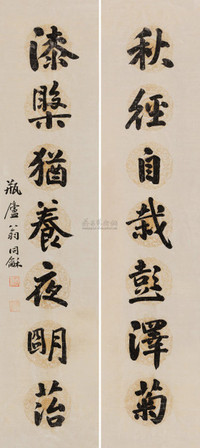 秋徑自栽彭澤菊
漆槃猶養夜明苔
瓶廬翁同龢